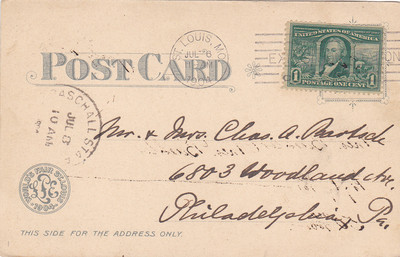 ST. LOUIS, MO.
JUL 6
POST CARD
UNITED STATES OF AMERICA
1 1
POSTAGE ONE CENT
PASCHALL STA.
JUL 8
10 AM
Mr. & Mrs. Chas. A. Bartsch
6803 Woodland Ave.
Philadelphia, Pa.
WORLD'S FAIR ST. LOUIS
1904
THIS SIDE FOR THE ADDRESS ONLY.